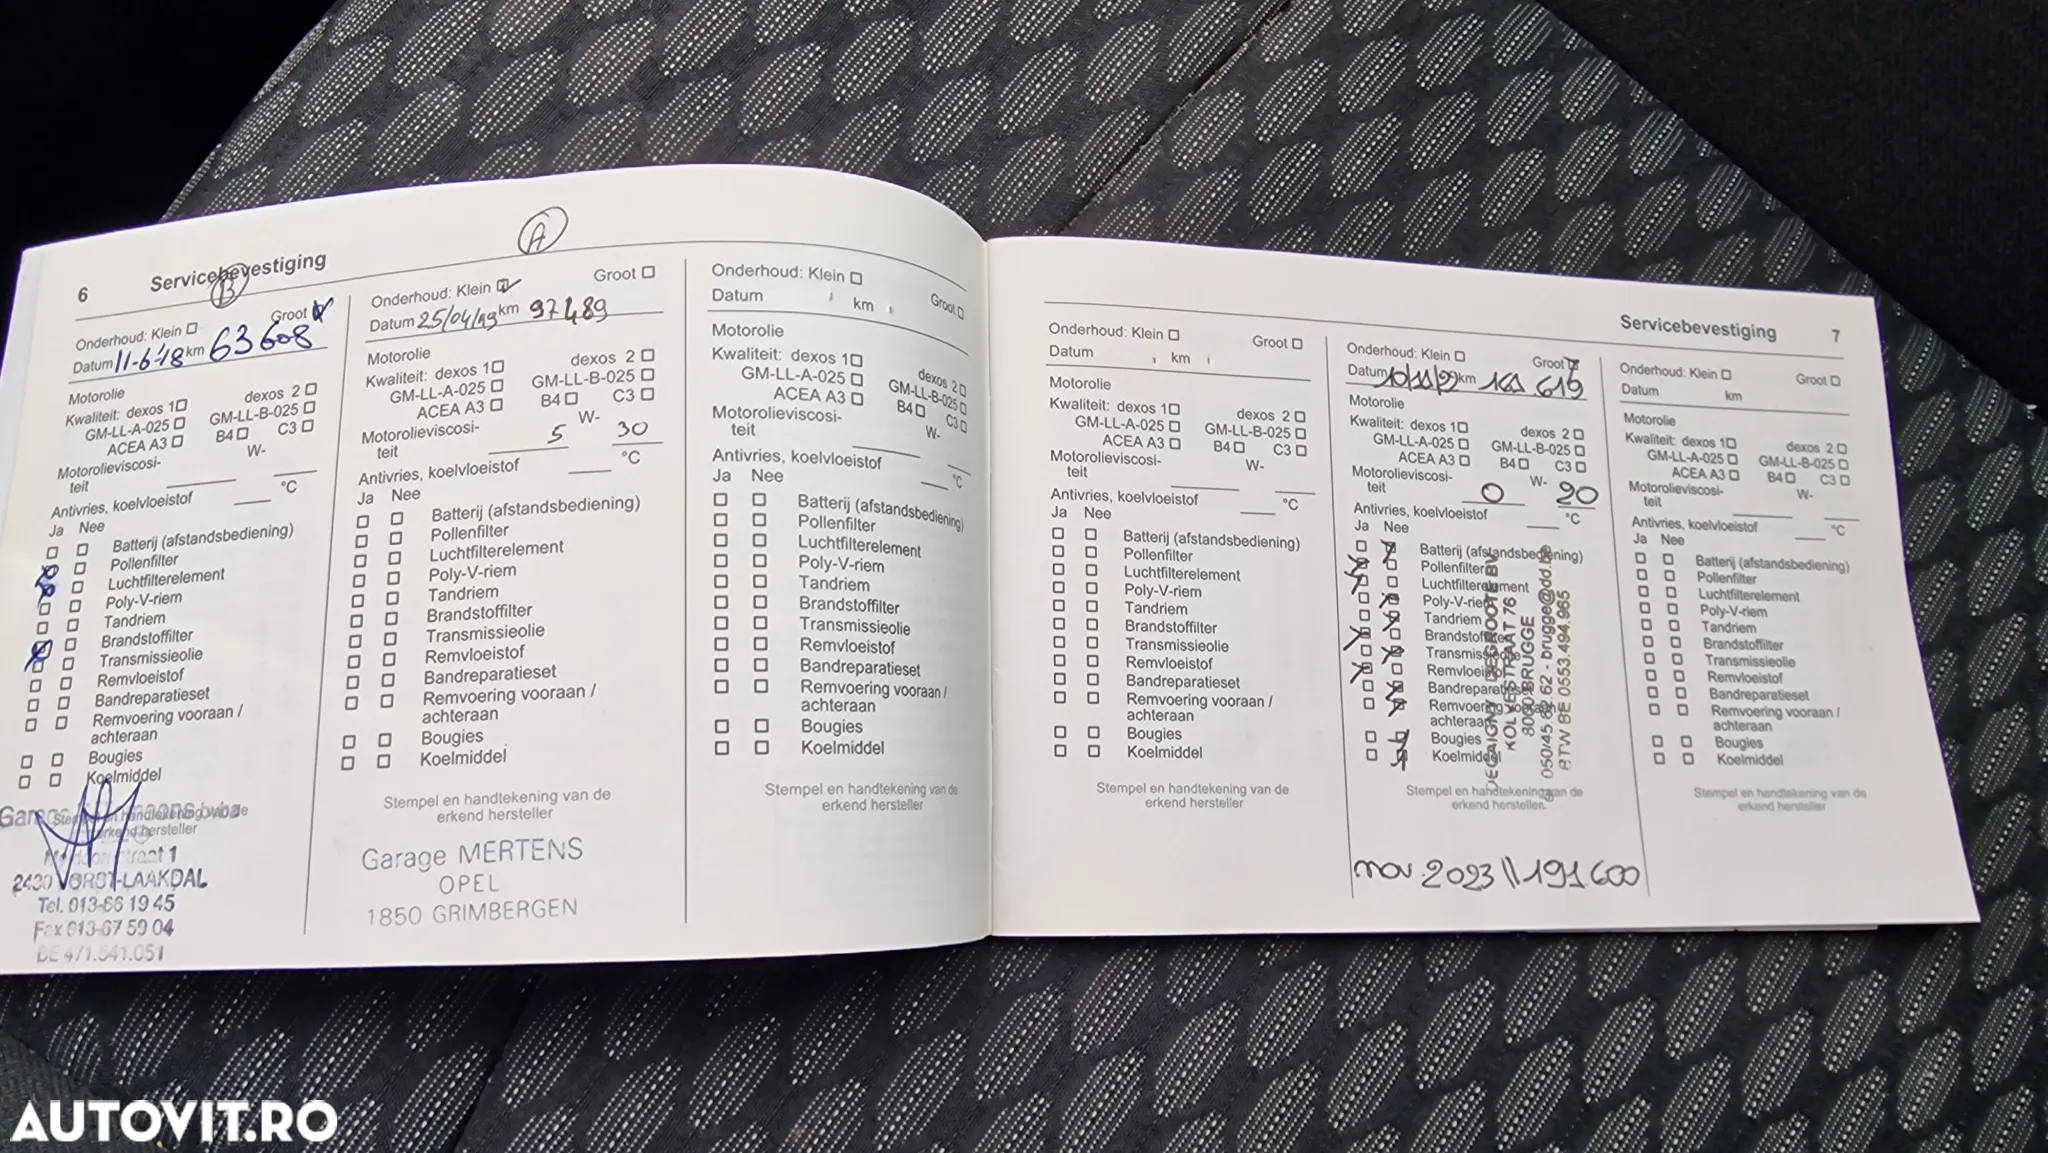 6 Servicebevestiging
B
Onderhoud: Klein Groot
Datum 11-6-18 km 63608
Motorolie
Kwaliteit: dexos 1 dexos 2
GM-LL-A-025 GM-LL-B-025
ACEA A3 B4 C3
Motorolieviscosi- W-
teit
Antivries, koelvloeistof °C
Ja Nee
Batterij (afstandsbediening)
Pollenfilter
Luchtfilterelement
Poly-V-riem
Tandriem
Brandstoffilter
Transmissieolie
Remvloeistof
Bandreparatieset
Remvoering vooraan /
achteraan
Bougies
Koelmiddel
Stempel en handtekening van de
erkend hersteller
2430 VORST-LAAKDAL
Tel. 013-66 19 45
Fax 013-67 59 04
BE 471.541.051
A
Onderhoud: Klein Groot
Datum 25/04/19 km 97489
Motorolie
Kwaliteit: dexos 1 dexos 2
GM-LL-A-025 GM-LL-B-025
ACEA A3 B4 C3
Motorolieviscosi- W-
teit 5 30
Antivries, koelvloeistof °C
Ja Nee
Batterij (afstandsbediening)
Pollenfilter
Luchtfilterelement
Poly-V-riem
Tandriem
Brandstoffilter
Transmissieolie
Remvloeistof
Bandreparatieset
Remvoering vooraan /
achteraan
Bougies
Koelmiddel
Stempel en handtekening van de
erkend hersteller
Garage MERTENS
OPEL
1850 GRIMBERGEN
Onderhoud: Klein Groot
Datum km
Motorolie
Kwaliteit: dexos 1 dexos 2
GM-LL-A-025 GM-LL-B-025
ACEA A3 B4 C3
Motorolieviscosi- W-
teit
Antivries, koelvloeistof °C
Ja Nee
Batterij (afstandsbediening)
Pollenfilter
Luchtfilterelement
Poly-V-riem
Tandriem
Brandstoffilter
Transmissieolie
Remvloeistof
Bandreparatieset
Remvoering vooraan /
achteraan
Bougies
Koelmiddel
Stempel en handtekening van de
erkend hersteller
Servicebevestiging 7
Onderhoud: Klein Groot
Datum km
Motorolie
Kwaliteit: dexos 1 dexos 2
GM-LL-A-025 GM-LL-B-025
ACEA A3 B4 C3
Motorolieviscosi- W-
teit
Antivries, koelvloeistof °C
Ja Nee
Batterij (afstandsbediening)
Pollenfilter
Luchtfilterelement
Poly-V-riem
Tandriem
Brandstoffilter
Transmissieolie
Remvloeistof
Bandreparatieset
Remvoering vooraan /
achteraan
Bougies
Koelmiddel
Stempel en handtekening van de
erkend hersteller
Onderhoud: Klein Groot
Datum km
Motorolie
Kwaliteit: dexos 1 dexos 2
GM-LL-A-025 GM-LL-B-025
ACEA A3 B4 C3
Motorolieviscosi- W-
teit 0 20
Antivries, koelvloeistof °C
Ja Nee
Batterij (afstandsbediening)
Pollenfilter
Luchtfilterelement
Poly-V-riem
Tandriem
Brandstoffilter
Transmissieolie
Remvloeistof
Bandreparatieset
Remvoering vooraan /
achteraan
Bougies
Koelmiddel
Stempel en handtekening van de
erkend hersteller
8000 BRUGGE
BTW BE 0553.494.965
nov. 2023 // 191.600
Onderhoud: Klein Groot
Datum km
Motorolie
Kwaliteit: dexos 1 dexos 2
GM-LL-A-025 GM-LL-B-025
ACEA A3 B4 C3
Motorolieviscosi- W-
teit
Antivries, koelvloeistof °C
Ja Nee
Batterij (afstandsbediening)
Pollenfilter
Luchtfilterelement
Poly-V-riem
Tandriem
Brandstoffilter
Transmissieolie
Remvloeistof
Bandreparatieset
Remvoering vooraan /
achteraan
Bougies
Koelmiddel
Stempel en handtekening van de
erkend hersteller
AUTOVIT.RO